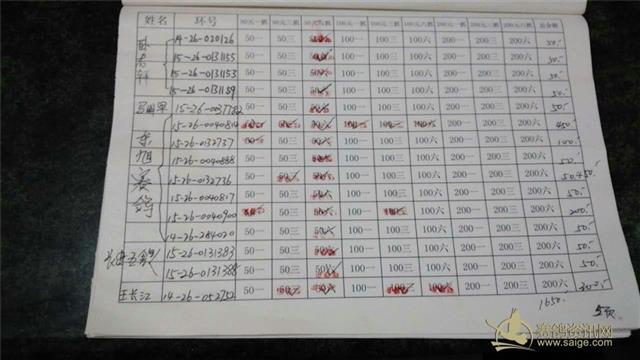 姓名 环号 50元一羽 50元三羽 50元六羽 100元一羽 100元三羽 100元六羽 200元一羽 200元三羽 200元六羽 总金额
14-26-020126 50一 50三 50六 100一 100三 100六 200一 200三 200六 50.-
15-26-0131155 50一 50三 50六 100一 100三 100六 200一 200三 200六 50.-
15-26-0131153 50一 50三 50六 100一 100三 100六 200一 200三 200六 50.-
15-26-0131159 50一 50三 50六 100一 100三 100六 200一 200三 200六 50.-
15-26-0037782 50一 50三 50六 100一 100三 100六 200一 200三 200六 50.-
15-26-0040814 50一 50三 50六 100一 100三 100六 200一 200三 200六 450.-
15-26-0132737 50一 50三 50六 100一 100三 100六 200一 200三 200六 100.-
15-26-0040888 50一 50三 50六 100一 100三 100六 200一 200三 200六 50.-
15-26-0132736 50一 50三 50六 100一 100三 100六 200一 200三 200六
15-26-0040817 50一 50三 50六 100一 100三 100六 200一 200三 200六 50.-
15-26-0040900 50一 50三 50六 100一 100三 100六 200一 200三 200六 200.-
14-26-284020 50一 50三 50六 100一 100三 100六 200一 200三 200六 50.-
15-26-0131383 50一 50三 50六 100一 100三 100六 200一 200三 200六 50.-
15-26-0131388 50一 50三 50六 100一 100三 100六 200一 200三 200六 50.-
王长江 14-26-052752 50一 50三 50六 100一 100三 100六 200一 200三 200六 300.-
1650.-
赛鸽资讯网
www.saige.com